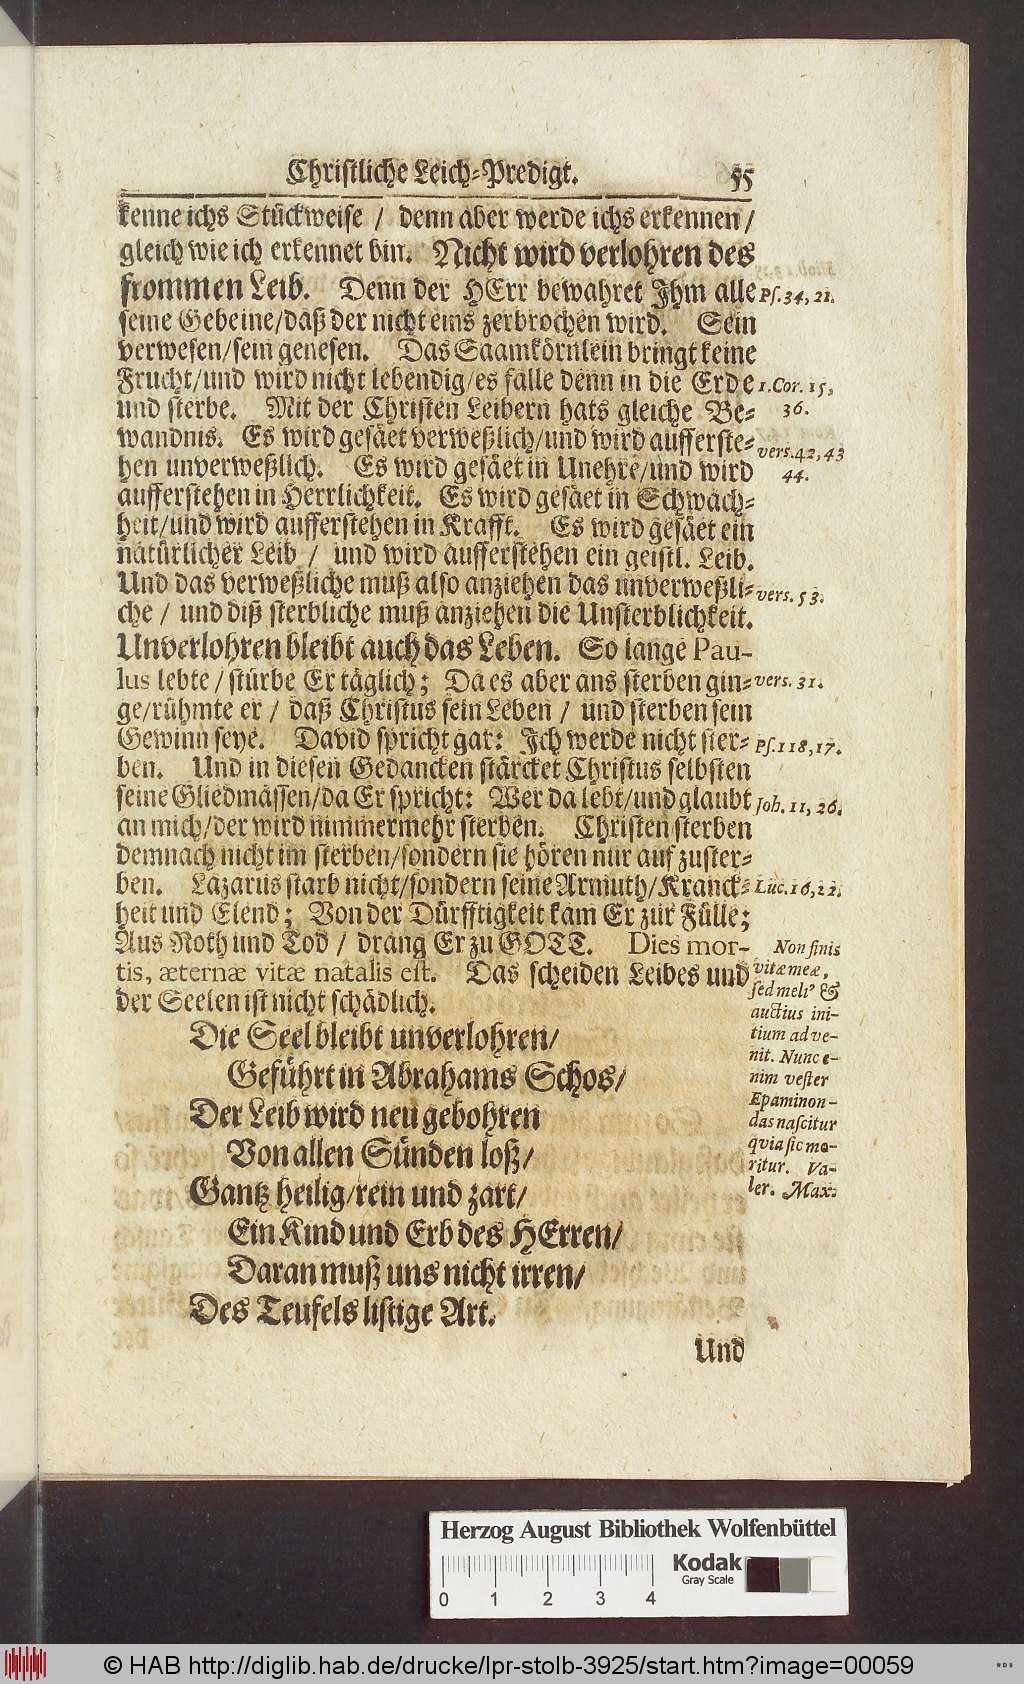 Christliche Leich-Predigt. 55
kenne ichs Stückweise / denn aber werde ichs erkennen /
gleich wie ich erkennet bin. Nicht wird verlohren des
frommen Leib. Denn der HErr bewahret Ihm alle
Ps. 34, 21.
seine Gebeine / daß der nicht eins zerbrochen wird. Sein
verwesen / sein genesen. Das Saamkörnlein bringt keine
Frucht / und wird nicht lebendig / es falle denn in die Erde
1. Cor. 15,
und sterbe. Mit der Christen Leibern hats gleiche Be-
36.
wandnis. Es wird gesäet verweßlich / und wird aufferste-
vers. 42, 43
hen unverweßlich. Es wird gesäet in Unehre / und wird
44.
aufferstehen in Herrlichkeit. Es wird gesäet in Schwach-
heit / und wird aufferstehen in Krafft. Es wird gesäet ein
natürlicher Leib / und wird aufferstehen ein geistl. Leib.
Und das verweßliche muß also anziehen das unverweßli-
vers. 53.
che / und diß sterbliche muß anziehen die Unsterblichkeit.
Unverlohren bleibt auch das Leben. So lange Pau-
lus lebte / stürbe Er täglich; Da es aber ans sterben gin-
vers. 31.
ge / rühmte er / daß Christus sein Leben / und sterben sein
Gewinn seye. David spricht gar: Ich werde nicht ster-
Ps. 118, 17.
ben. Und in diesen Gedancken stärcket Christus selbsten
seine Gliedmässen / da Er spricht: Wer da lebt / und glaubt
Joh. 11, 26.
an mich / der wird nimmermehr sterben. Christen sterben
demnach nicht im sterben / sondern sie hören nur auf zuster-
ben. Lazarus starb nicht / sondern seine Armuth / Kranck-
Luc. 16, 22.
heit und Elend; Von der Dürfftigkeit kam Er zur Fülle;
Aus Noth und Tod / drang Er zu GOTT. Dies mor-
tis, æternæ vitæ natalis est. Das scheiden Leibes und
der Seelen ist nicht schädlich.
Non finis
vitæ meæ,
sed meli' &
auctius ini-
tium adve-
nit. Nunc e-
nim vester
Epaminon-
das nascitur
quia sic mo-
ritur. Va-
ler. Max.
Die Seel bleibt unverlohren /
Geführt in Abrahams Schos /
Der Leib wird neu gebohren
Von allen Sünden loß /
Gantz heilig / rein und zart /
Ein Kind und Erb des HErren /
Daran muß uns nicht irren /
Des Teufels listige Art.
Und
Herzog August Bibliothek Wolfenbüttel
Kodak
Gray Scale
0 1 2 3 4
© HAB http://diglib.hab.de/drucke/lpr-stolb-3925/start.htm?image=00059